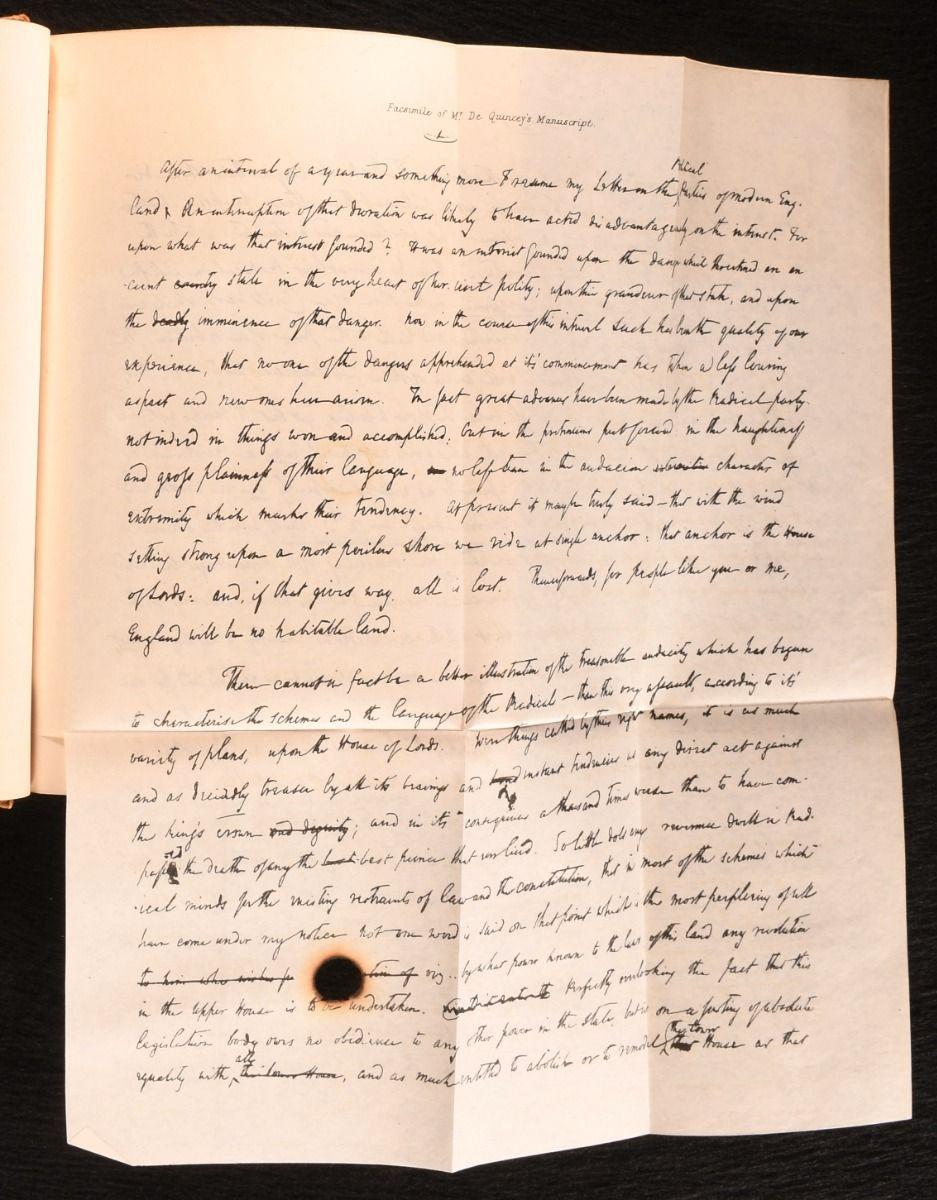 Facsimile of Mr. De Quincey's Manuscript.
After an interval of a year and something more I resume my Letter on the Political Parties of modern Eng-
land. An interruption of that duration was likely to have acted disadvantageously on the interest. For
upon what was that interest founded? It was an interest founded upon the danger which threatened an an-
cient country state in the very heart of her civil polity; upon the grandeur of that state, and upon
the deadly imminence of that danger. Now in the course of this interval such has been the quality of our
experience, that no one of the dangers apprehended at its' commencement has taken a less louring
aspect and new ones have arisen. In fact great advances have been made by the Radical party.
not indeed in things won and accomplished; but in the pretensions put forward, in the haughtiness
and gross plainness of their language, no less than in the audacious character of
extremity which marks their tendency. At present it may be truly said – that with the wind
setting strong upon a most perilous shore we ride at single anchor: that anchor is the House
of Lords: and, if that gives way, all is lost. Thenceforwards, for people like you or me,
England will be no habitable land.
There cannot in fact be a better illustration of the treasonable audacity which has begun
to characterise the schemes and the language of the Radicals – than this very assault, according to its'
variety of plans, upon the House of Lords. Were things called by their right names, it is as much
and as decidedly treason by all its bearings and instant tendencies as any direct act against
the king's crown and dignity; and in its' consequences a thousand times worse than to have com-
passed the death of any the best prince that ever lived. So little does any reverence dwell in Rad-
ical minds for the existing restraints of law and the constitution, that in most of the schemes which
have come under my notice not one word is said on that point which is the most perplexing of all
to him who wishes for viz. – by what power known to the law of this land any revolution
in the upper House is to be undertaken. Perfectly overlooking the fact that this
legislative body owes no obedience to any other power in the state, but is on a footing of absolute
equality with all the lower House, and as much entitled to abolish or to remodel the lower House as that